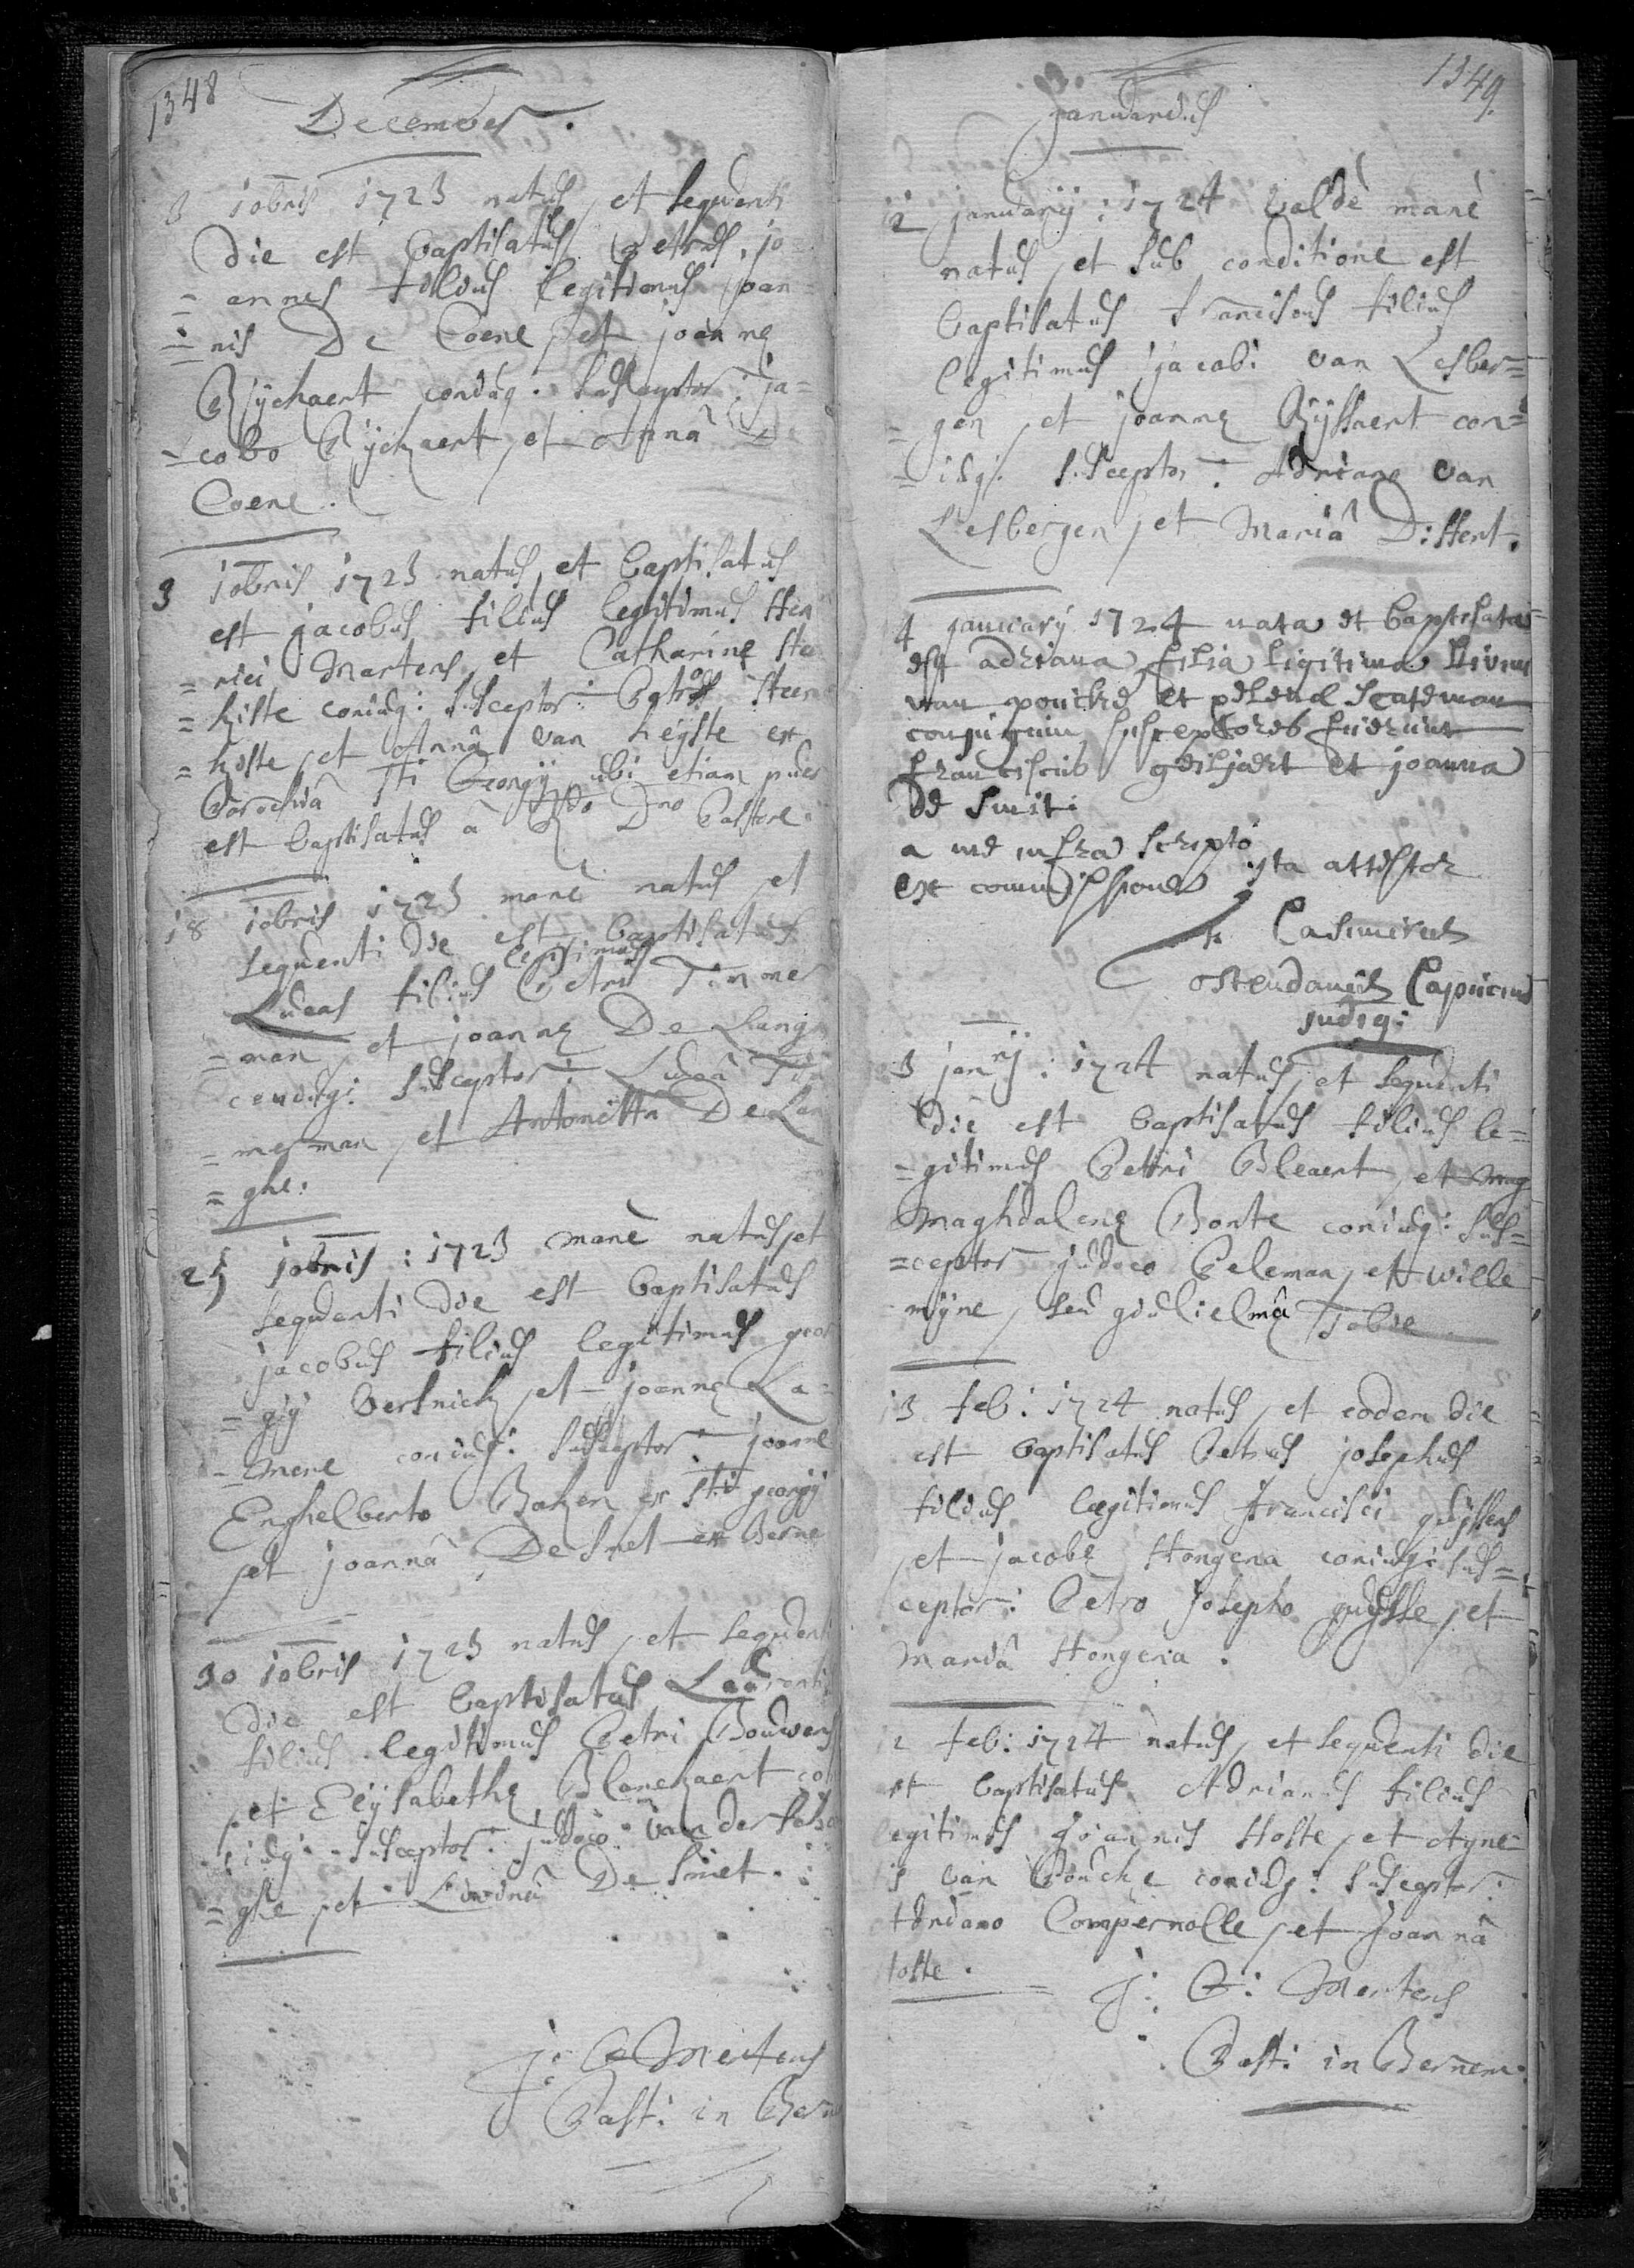 1348
December.
3 10bris 1723 natus, et sequenti
die est baptisatus Petrus, jo=
=annes filius legitimus joan=
=nis De Coene, et joannę
Rÿchaert coniug: susceptor: ja=
=cobo Rÿchaert, et Annâ De
Coene.
9 10bris 1723 natus, et baptisatus
est jacobus filius legitimus Hen
=rici Martens, et Catharinę Ste
=kiste coniug: susceptor: Petro Steen
=kiste, et Annâ van heÿste ex
Parochiâ Sti Georgÿ ubi etiam puer
est baptisatus â Rdo Dno Pastore.
18 10bris 1723 manè natus, et
sequenti die est baptisatus
Lucas filius legitimus Petri Timmer
=man, et joannę De Lang
coniug: susceptor: Lucâ Tim
=merman, et Antonetta De Lan
=ghe:
25 10bris: 1723 manè natus, et
sequenti die est baptisatus
jacobus filius legitimus geor
=gÿ Verknick, et joannę La=
=mere coniug: susceptor: joanne
Enghelberto Baken ex Sti georgÿ
, et joannâ De Smet ex Berne
30 10bris 1723 natus, et sequenti
die est baptisatus Laurenti
filius legitimus Petri Bouwens
, et Elÿsabethę Blanckaert co
=iug: susceptor: judoco van der
=ghe, et Livinâ De Smet.
J: C Mertens
Past: in Bern
1349.
Januarius
2 januarÿ: 1724 valdè manè
natus, et sub conditione est
baptisatus Franciscus filius
legitimus jacobi van Lesber=
=gen, et joannę Rÿssaert con=
=iug: susceptor: Adriano van
Lesbergen, et Mariâ Dissert.
4 januarÿ 1724 nata et baptisata
est adriana filia ligitima livini
van poucke et petronel scateman
conjugum susceptores fuerunt
franciscus geiljaert et joanna
de smit:
a me infra scripto
ex commissione ita attestor
fr. Casimirus
ostendanus Capucinus
indig:
3 janrÿ: 1724 natus, et sequenti
die est baptisatus filius le=
=gitimus Petri Bleaert, et mag
Maghdalenę Bonte coniug: sus=
=ceptor judoco Celeman, et wille
mÿne, seu gulielmâ Tobie
13 feb: 1724 natus, et eodem die
est baptisatus Petrus josephus
filius legitimus Francisci guÿssens
, et jacobę Hongena coniug: sus=
ceptor: Petro josepho guÿsse, et
Mariâ Hongena.
2 feb: 1724 natus, et sequenti die
st baptisatus Adrianus filius
egitimus joannis Hoste, et Agne
s van Poucke coniug: susceptor:
Compernolle, et joannâ
toste.
J: C: Mertens
Past: in Bernem: